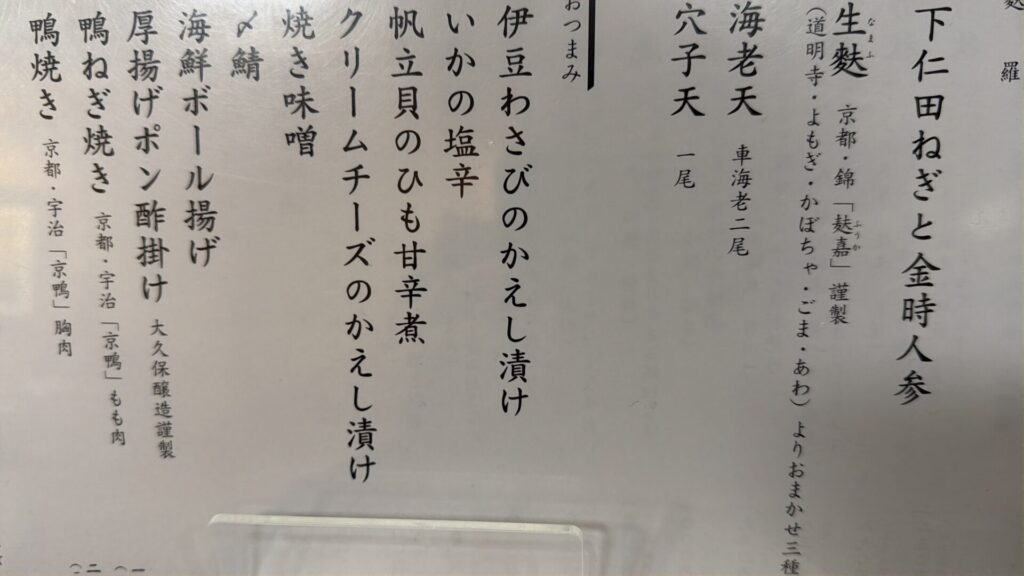 羅
下仁田ねぎと金時人参
生麩 京都・錦「麸嘉」謹製
なまふ
ふうか
(道明寺・よもぎ・かぼちゃ・ごま・あわ)よりおまかせ三種
海老天 車海老二尾
穴子天 一尾
おつまみ
伊豆わさびのかえし漬け
いかの塩辛
帆立貝のひも甘辛煮
クリームチーズのかえし漬け
焼き味噌
〆鯖
海鮮ボール揚げ
厚揚げポン酢掛け 大久保醸造謹製
鴨ねぎ焼き 京都・宇治「京鴨」もも肉
鴨焼き 京都・宇治「京鴨」胸肉